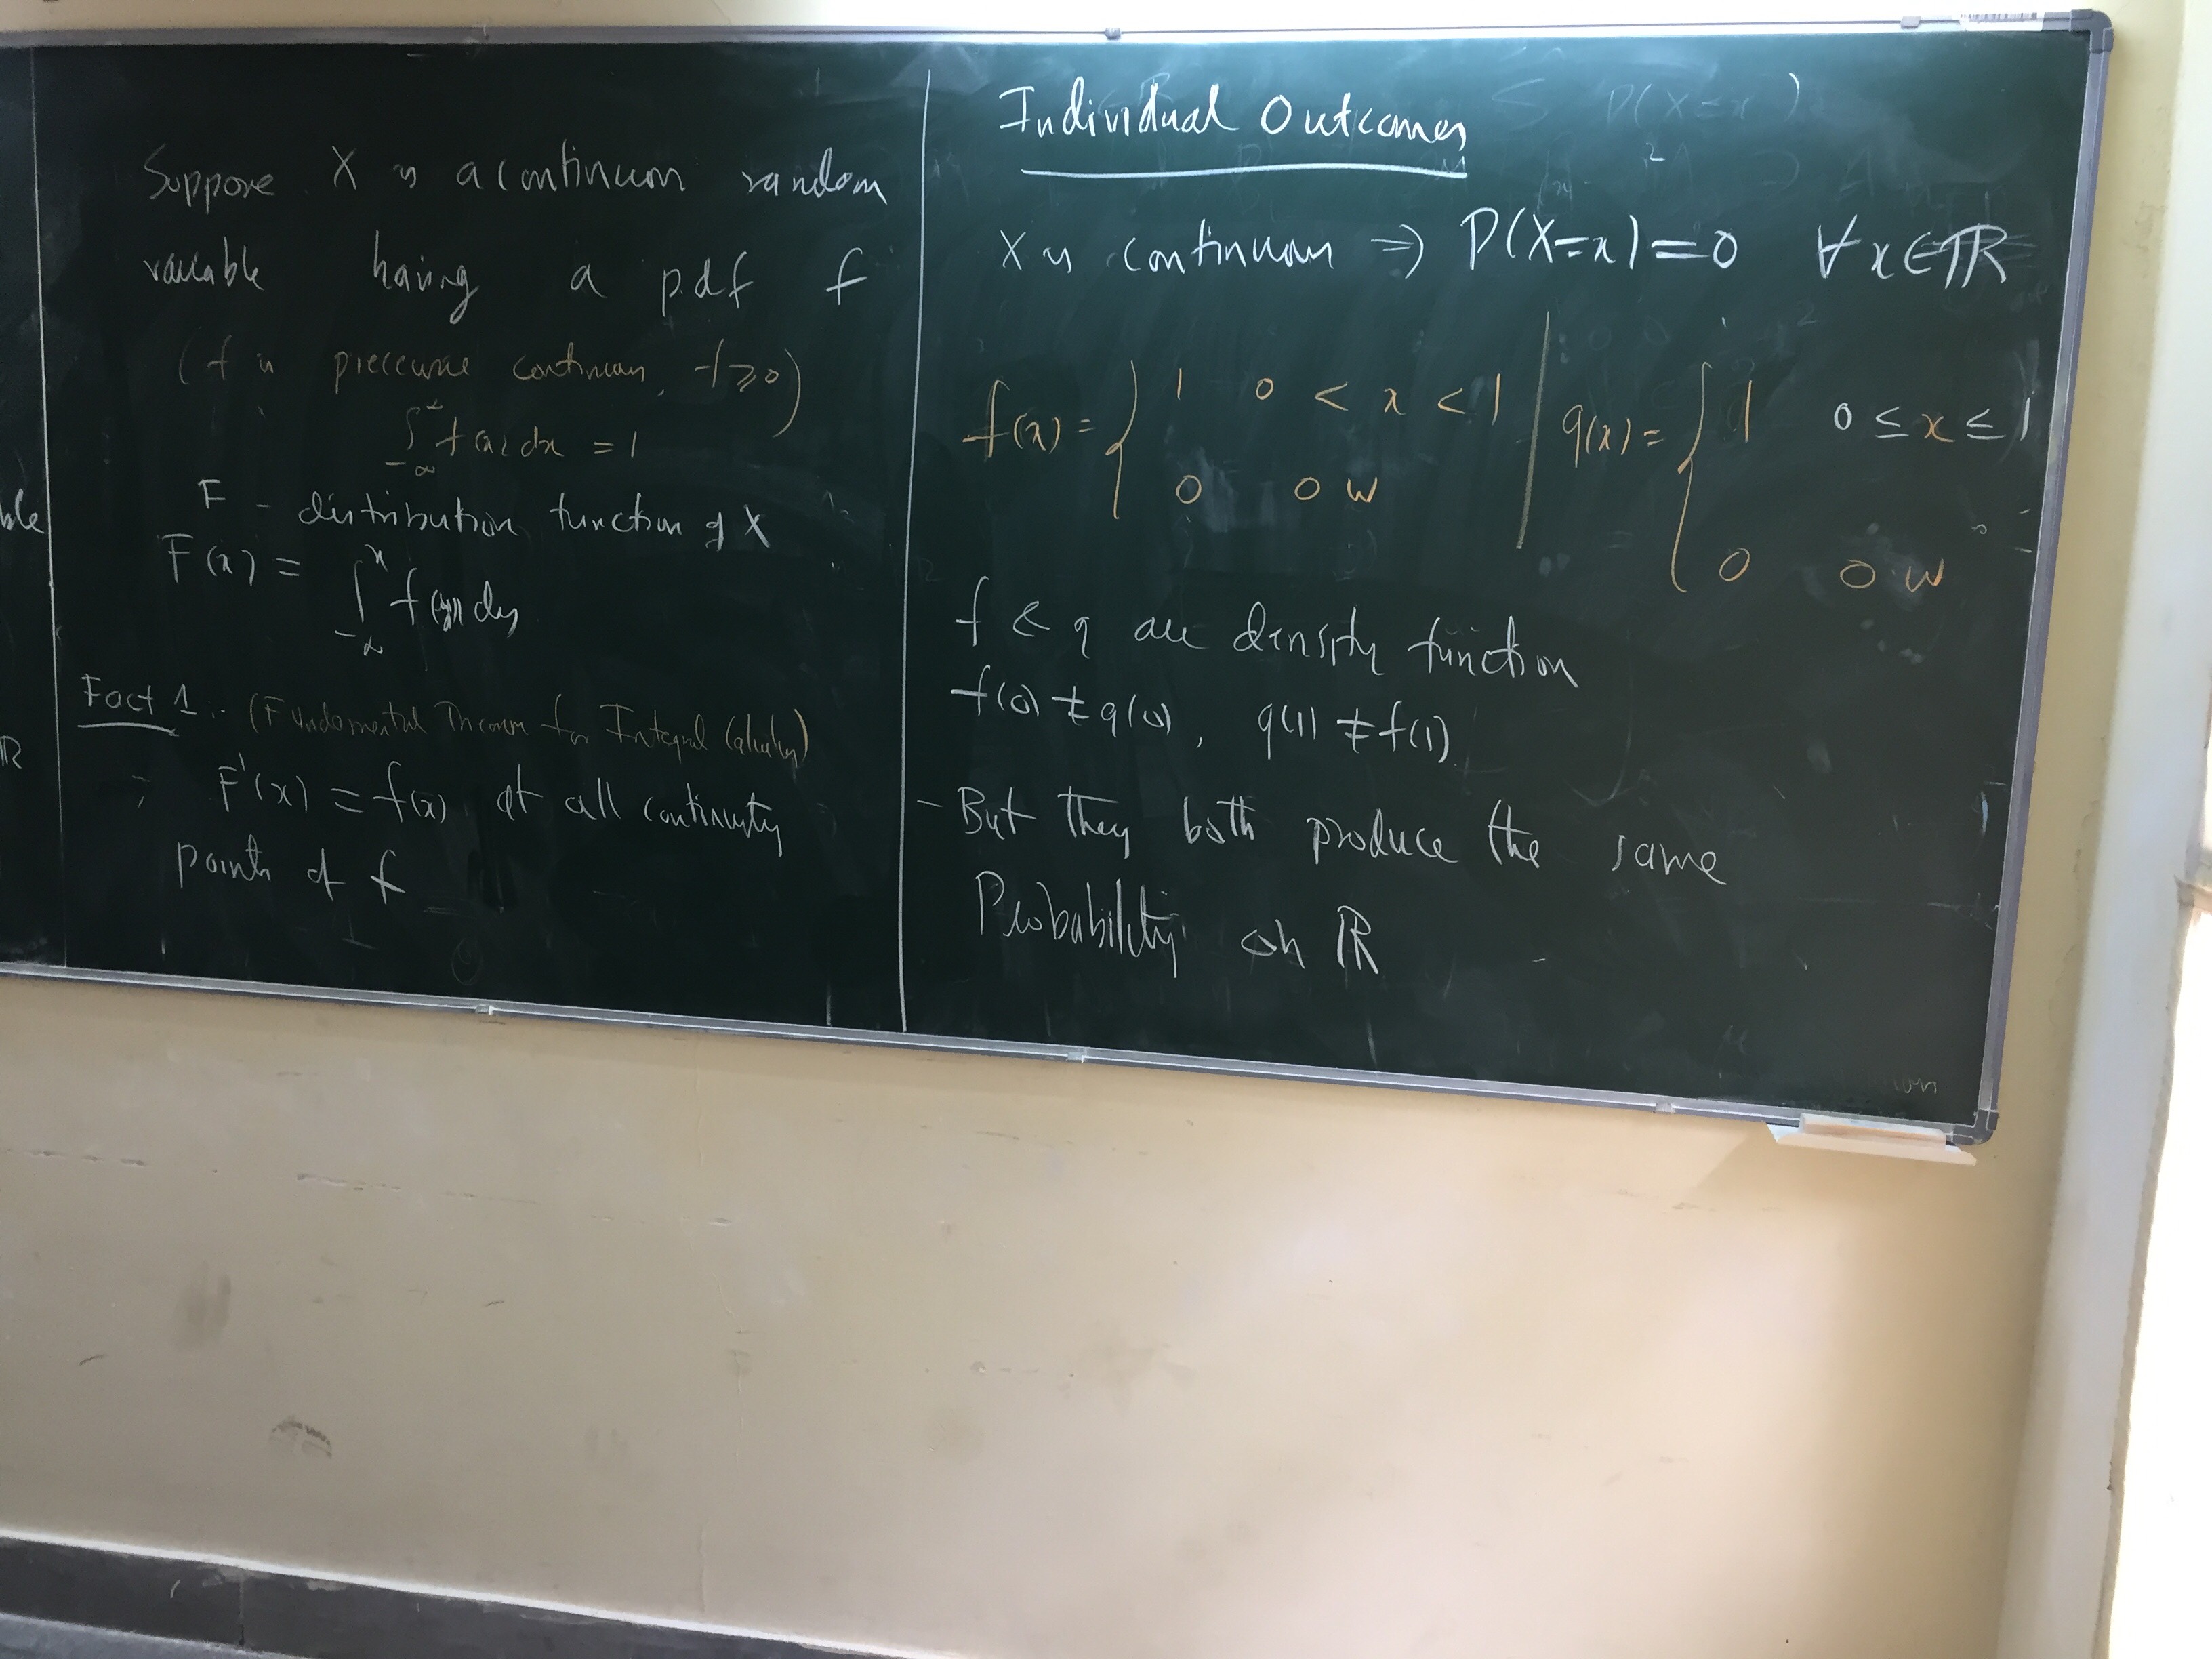 ble
R
Suppose X is a continuous random
variable having a p.d.f f
(f is piecewise continuous, f ≥ 0)
∫_{-∞}^{∞} f(x) dx = 1
F - distribution function of X
F(x) = ∫_{-∞}^{x} f(y) dy
Fact 1 :- (Fundamental Theorem for Integral Calculus)
F'(x) = f(x) at all continuity
points of f
Individual Outcomes
X is continuous ⇒ P(X=x) = 0 ∀ x ∈ ℝ
f(x) = { 1 0 < x < 1
0 0 w
g(x) = { 1 0 ≤ x ≤ 1
0 0 w
f & g are density function
f(0) ≠ g(0), g(1) ≠ f(1)
- But they both produce the same
Probability on ℝ